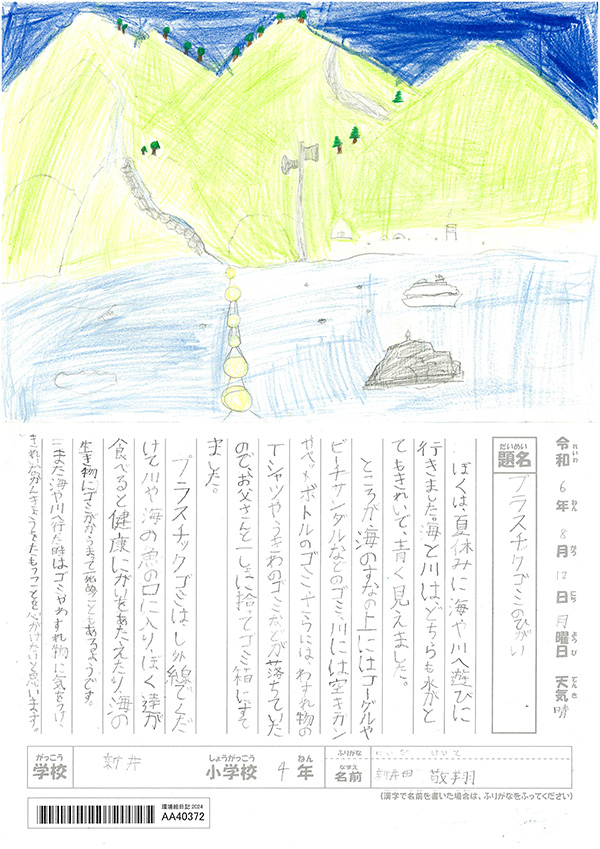 令和6年8月12日月曜日 天気 晴
れいわ ねん がつ にち ようび てんき
だいめい
題名 プラスチックゴミのひがい
ぼくは、夏休みに海や川へ遊びに
行きました。海と川は、どちらも水がと
てもきれいで、青く見えました。
ところが、海のすなの上にはゴーグルや
ビーチサンダルなどのゴミ、川には空きカン
やペットボトルのゴミ、さらには、わすれ物の
Tシャツや、うちわのゴミなどが落ちていた
ので、お父さんと一しょに拾ってゴミ箱にすて
ました。
プラスチックゴミは、し外線でくだ
けて川や海の魚の口に入り、ぼく達が
食べると健康にがいをあたえたり、海の
生き物にゴミがからまって死ぬこともあるようです。
また海や川へ行た時はゴミやわすれ物に気をつけ、
きれいなかんきょうをたもつことを心がけたいと思います。
がっこう
学校 新井 しょうがっこう 小学校 4 ねん 年
ふりがな にいだ けいと
なまえ
名前 新井田 敬翔
(漢字で名前を書いた場合は、ふりがなをふってください)
環境絵日記2024
AA40372